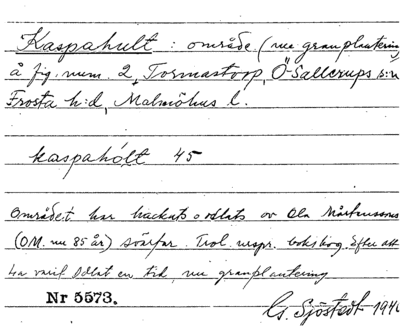 Kaspahult : område (nu granplantering
å fig. num. 2, Tormastorp, Ö-Sallerups s:n
Frosta h:d, Malmöhus l.
kaspahólt 45
Området har hackats o odlats av Ola Mårtensson
(O.M. nu 85 år) svärfar. Trol. urspr. bokskog. Efter att
ha varit odlat en tid, nu granplantering
Nr 5573.
G. Sjöstedt 1946